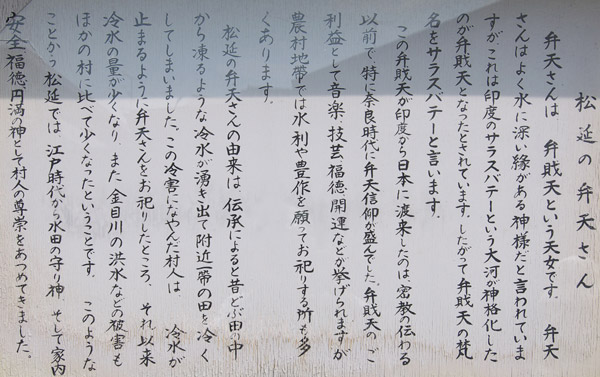 松延の弁天さん
弁天さんは 弁戝天という天女です。 弁天
さんはよく水に深い縁がある神様だと言われていま
すが、これは印度のサラスバテーという大河が神格化した
のが弁戝天となったとされています。したがって弁戝天の梵
名をサラスバテーと言います。
この弁戝天が印度から日本に渡来したのは密教の伝わる
以前で、特に奈良時代に弁天信仰が盛んでした。弁戝天のご
利益として音楽、技芸、福徳、開運などが挙げられますが
農村地帯では水利や豊作を願ってお祀りする所も多
くあります。
松延の弁天さんの由来は、伝承によると昔どぶ田の中
から凍るような冷水が湧き出て附近一帯の田を冷く
してしまいました。この冷害になやんだ村人は 冷水が
止まるように弁天さんをお祀りしたところ、それ以来
冷水の量が少くなり、また、金目川の洪水などの被害も
ほかの村に比べて少くなったということです。 このような
ことから松延では、江戸時代から水田の守り神、そして家内
安全、福徳円満の神として村人の尊崇をあつめてきました。